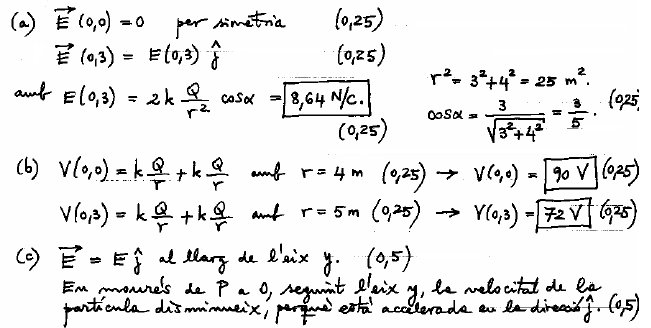 (a) E⃗(0,0) = 0 per simetria (0,25)
E⃗(0,3) = E(0,3) ĵ (0,25)
amb E(0,3) = 2k Q/r² cosα = 8,64 N/C. (0,25)
r² = 3²+4² = 25 m².
cosα = 3/√(3²+4²) = 3/5. (0,25)
(b) V(0,0) = k Q/r + k Q/r amb r = 4 m (0,25) → V(0,0) = 90 V (0,25)
V(0,3) = k Q/r + k Q/r amb r = 5 m (0,25) → V(0,3) = 72 V (0,25)
(c) E⃗ = E ĵ al llarg de l'eix y. (0,5)
En moure's de P a O, seguint l'eix y, la velocitat de la
partícula disminueix, perquè està accelerada en la direcció ĵ. (0,5)